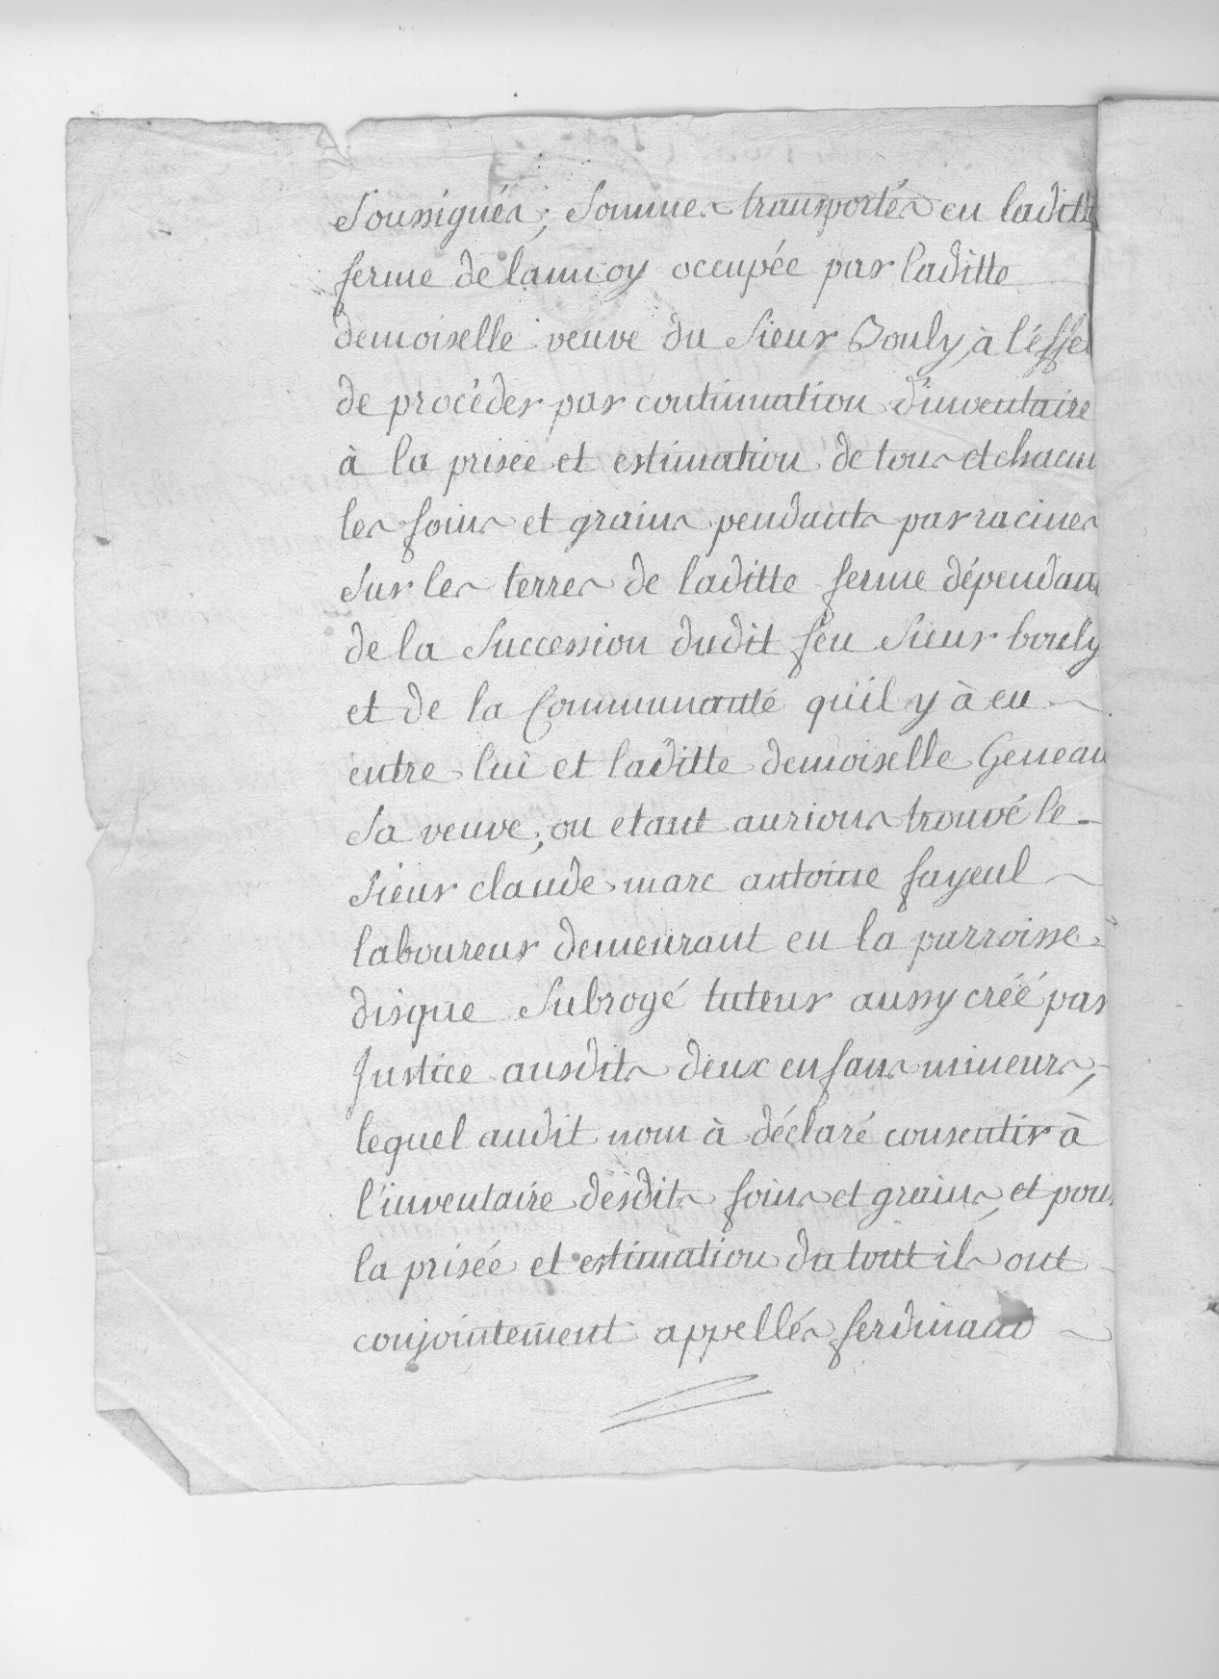 Soussignés; sommes transportés en laditte
ferme de lannoy occupée par laditte
demoiselle veuve du Sieur Bouly, à l'éffet
de procéder par continuation d'inventaire
à la prisée et estimation de tous et chacun
les foins et grains pendants par racines
sur les terres de laditte ferme dépendans
de la Succession dudit feu Sieur bouly
et de la Communauté qu'il y à eu
entre lui et laditte demoiselle Geneau
sa veuve; ou etant aurions trouvé le
sieur claude marc antoine fayeul
laboureur demeurant en la parroisse
disque subrogé tuteur aussy créé par
Justice ausdits deux enfans mineurs,
lequel audit nom à déclaré consentir à
l'inventaire desdits foins et grains, et pour
la prisée et estimation du tout ils ont
conjointement appellés ferdinand